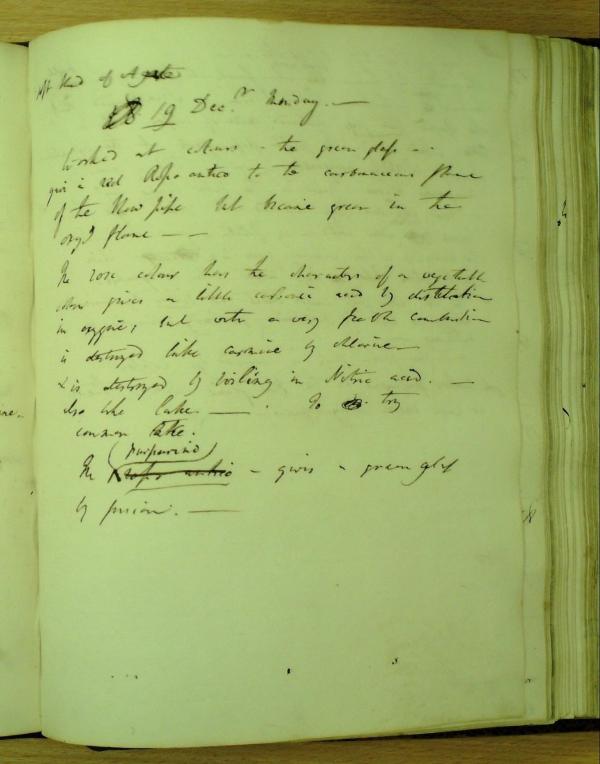 kind of Agate
19 Decr. Monday. —
Worked at colours - the green glass - -
give a red Rosso antico to the carbonaceous flame
of the blow pipe but became green in the
oxyd flame — —
The rose colour has the characters of a vegetable
colour gives a little carbonic acid by distillation
in oxygene, but with a very feeble combustion
is destroyed like carmine by chlorine —
& is destroyed by boiling in Nitric acid. —
also like lake. — . To try
common lake.
(Purpurino)
The rosso antico - gives a green glass
by fusion. —